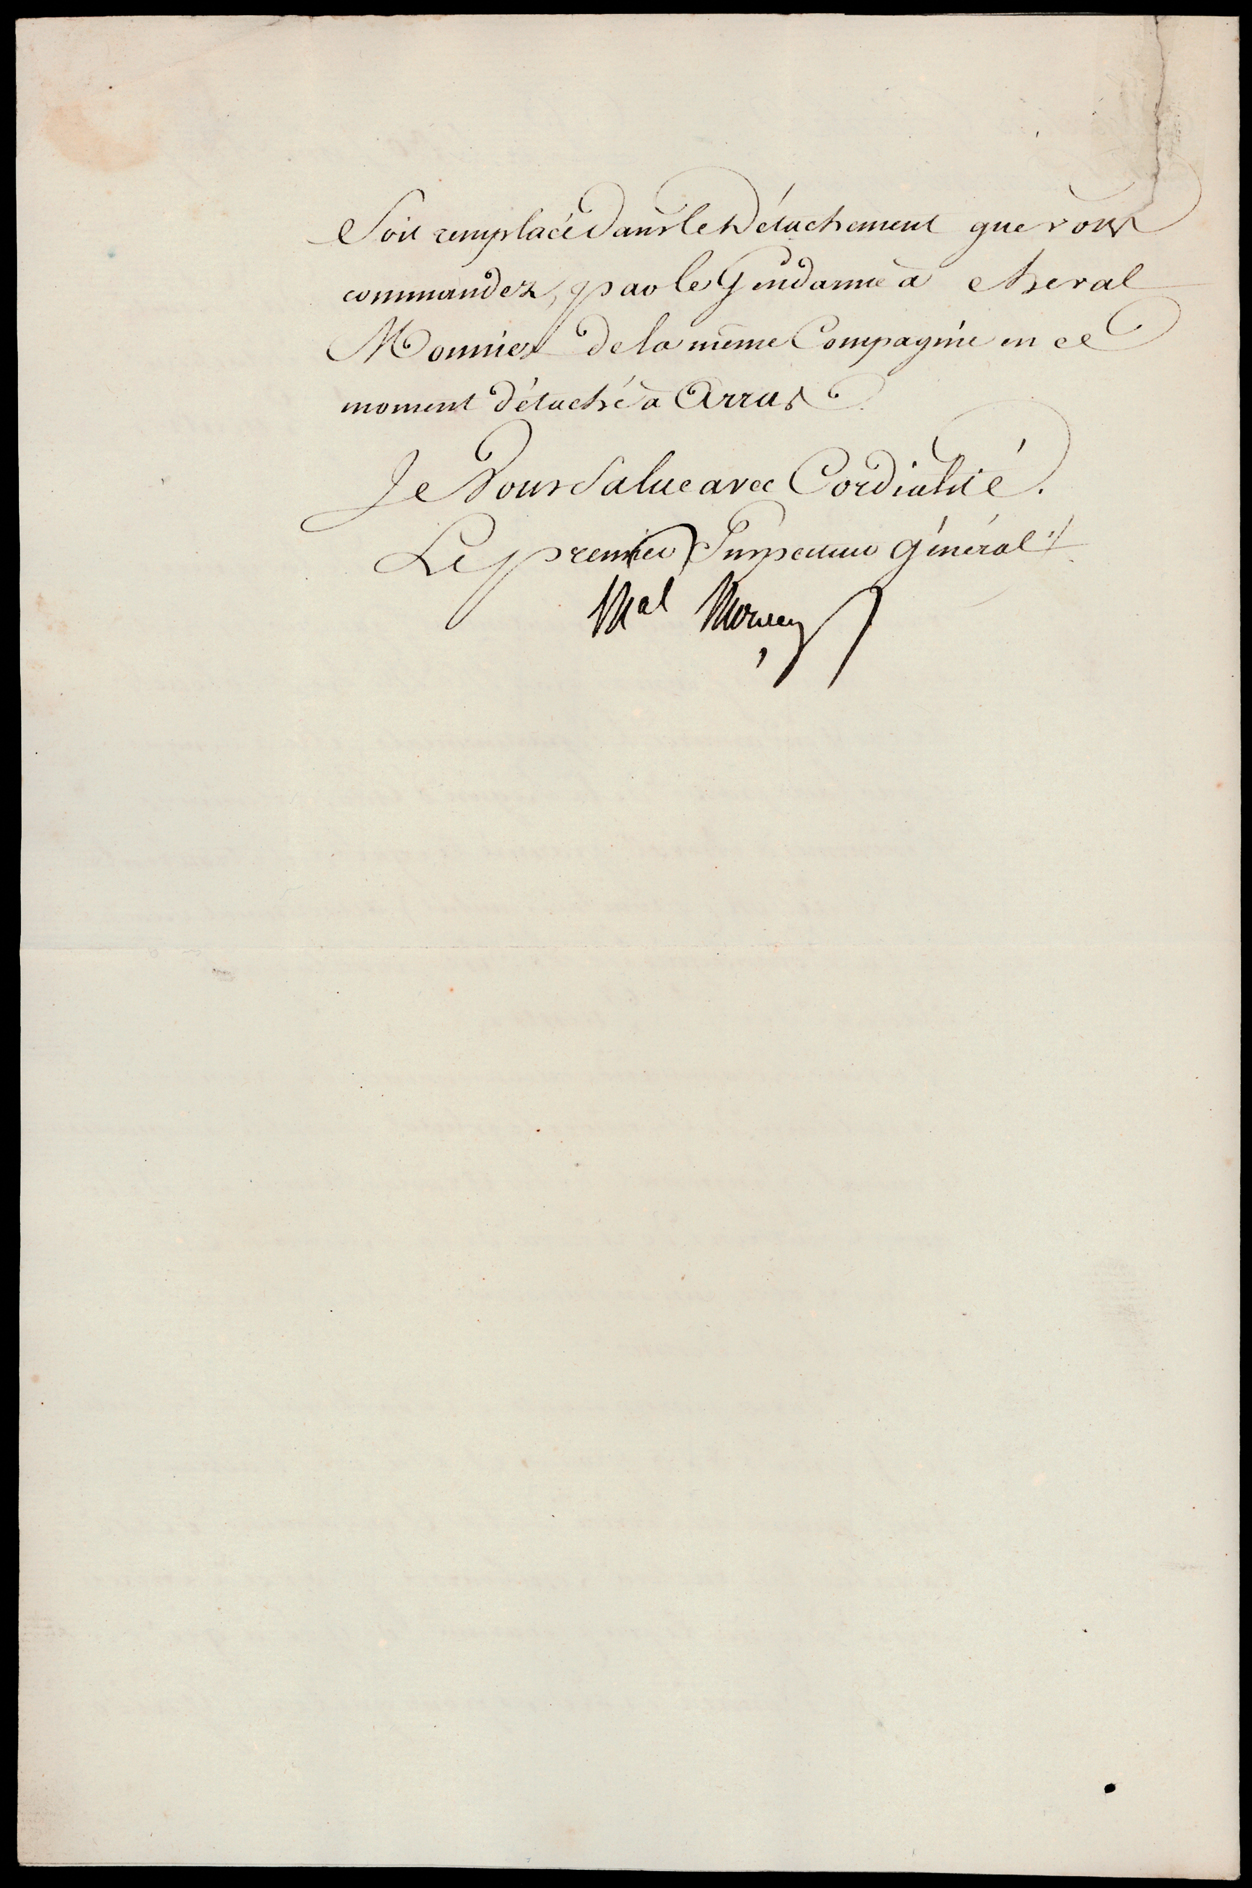 Soit remplacé dans le Détachement que vous
commandez, par le Gendarme à cheval
Monnier de la même Compagnie en ce
moment détaché à Arras.
Je Vous Salue avec Cordialité.
Le premier Inspecteur Général
Mal Moncey